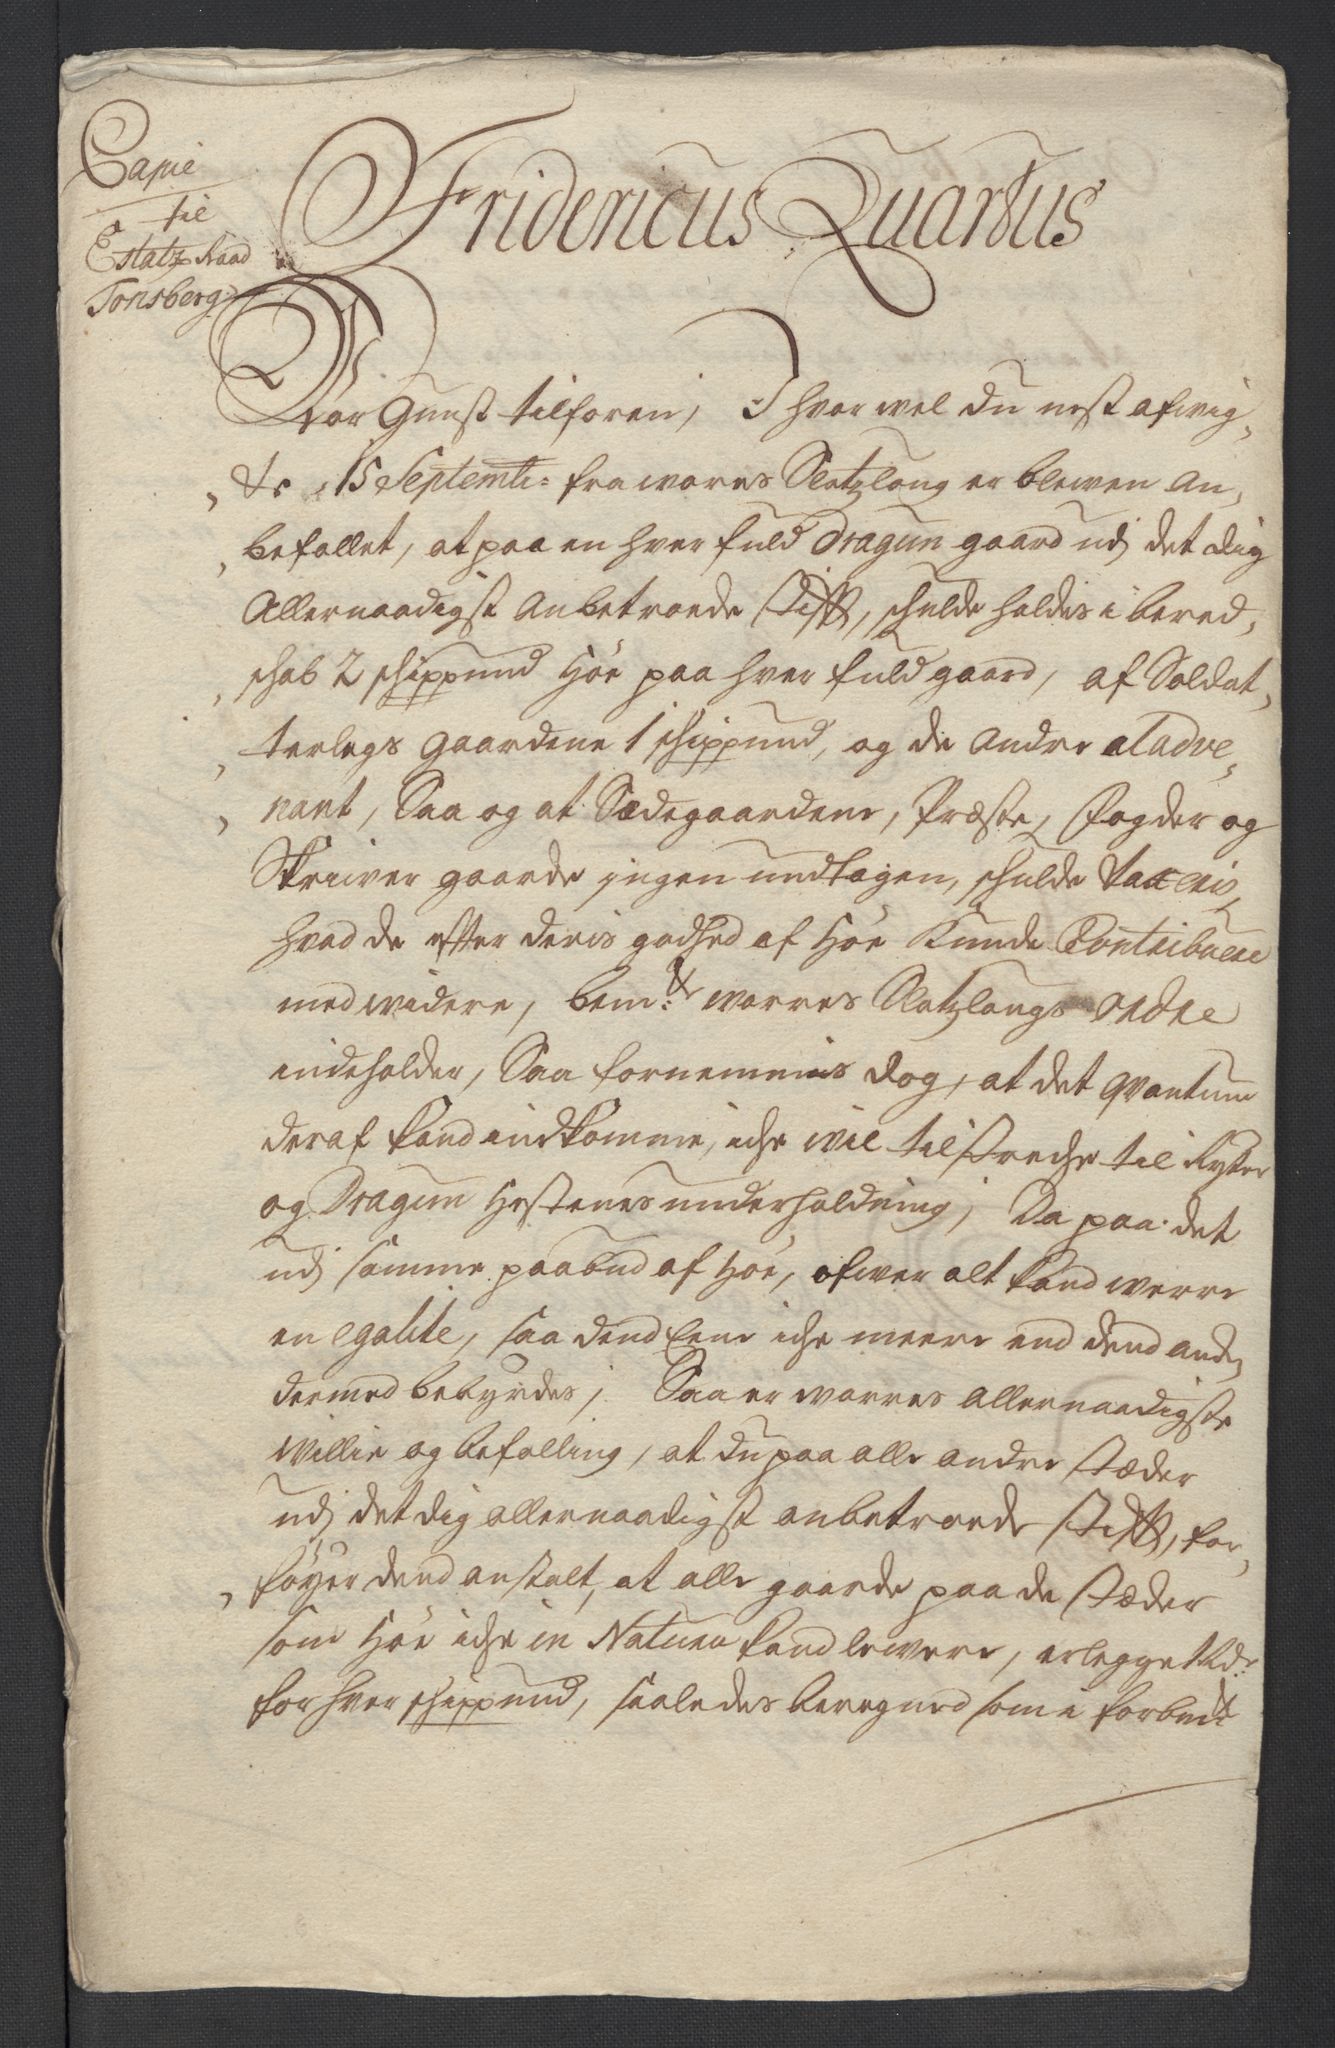 Copie
til
Etatz Raad
Tonsberg
Fridericus Quartus
Vor Gunst tilforen, I hvor vel du nest afvig-
te 15 Septembr: fra vores Slotzloug er bleven an-
befallet, at paa en hver fuld Dragun gaard udj det dig
Allernaadigst anbetroede Stifft, schulde holdes i bered-
schab 2 schippund Høe paa hver fuld gaard, af Soldat-
terlegs gaardene 1 schippund, og de andre a l'adve-
nant, Saa og at Sædegaardene, Præste, Fogder og
Skriver gaarde jngen undtagen, schulde taxeris,
hvad de efter deris godhed af Høe kunde Contribuere
med videre, bem:te vorres Slotzlougs Ordre
indeholder, Saa fornemmis dog, at det Qvantum
deraf kand indkomme, iche vil tilstreche til Rytter
og Dragun Hestenes underholdning; Da paa det
udj samme paabud af Høe, ofver alt kand verre
en egalite, saa dend Eene iche meere end dend and,
dermed bebyrdes; Saa er vorres allernaadigste
Villie og befalling, at du paa alle andre stæder
udj det dig allernaadigst anbetroede Stifft, for-
føyer dend anstalt, at alle gaarde paa de stæder
som Høe iche in Natura kand levere, erlegge 1 Rdr
for hver schippund, saaledes beregned som i forbem:te